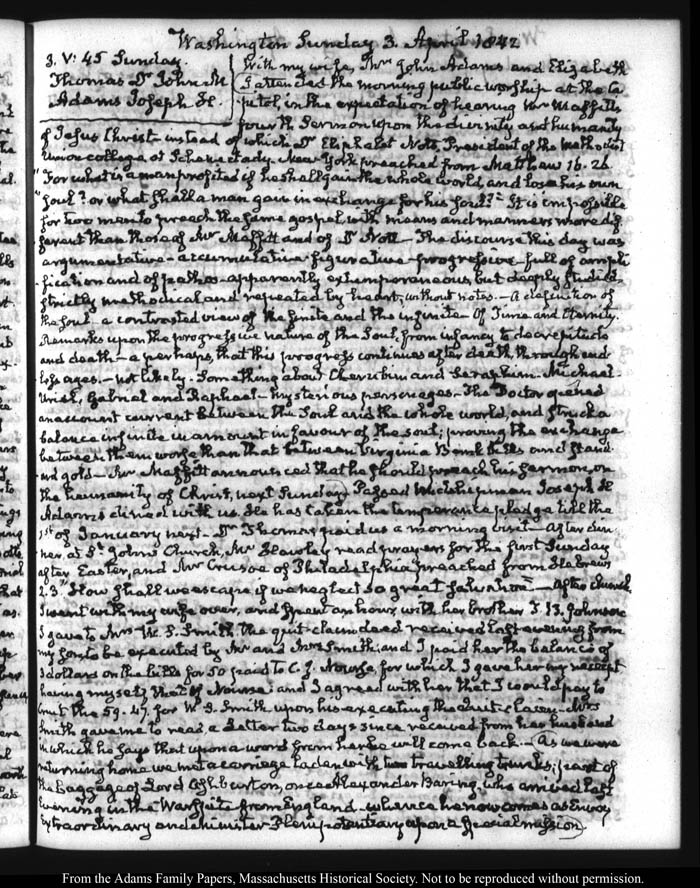 Washington Sunday 3. April 1842
3. V: 45 Sunday.
Thomas Dr John M
Adams Joseph H.
With my wife, Mrs John Adams and Elizabeth
I attended the morning public worship at the Ca
pitol, in the expectation of hearing Mr Maffitt's
fourth Sermon upon the divinity and humanity
of Jesus Christ instead of which Dr Eliphalet Nott, President of the Methodist
Union college at Schenectady. New York preached from Matthew 16. 26.
"For what is a man profited if he shall gain the whole world, and lose his own
"soul? or what shall a man give in exchange for his soul?" It is impossible
for two men to preach the same gospel with means and manners more dif
ferent than those of Mr Maffitt and of Dr Nott— The discourse this day was
argumentative—accumulative figurative—progressive full of ampli
fication and of pathos—apparently extemporaneous, but deeply studied
strictly methodical and repeated by heart, without notes.—A definition of
the soul—a contrasted view of the finite and the infinite—Of Time and Eternity.
Remarks upon the progressive nature of the Soul, from infancy to decrepitude
and death—a perhaps, that this progress continues after death, through end
less ages.—not likely. Something about Cherubim and Seraphim. Michael
Uriel, Gabriel and Raphael—mysterious personages—The Doctor opened
an account current between the Soul and the whole world, and struck a
balance infinite in amount in favour of the soul; proving the exchange
between them worse than that between Virginia Bank bills and stand
ard gold—Mr Maffitt announced that he should preach his sermon, on
the humanity of Christ, next Sunday Passed Midshipman Joseph H
Adams dined with us. He has taken the temperance pledge till the
1st of January next—Dr Thomas paid us a morning visit—After din
ner, at St John's Church, Mr Hawley read prayers for the first Sunday
after Easter, and Mr Crusoe of Philadelphia preached from Hebrews
2. 3. How shall we escape if we neglect so great salvation—After church
I went with my wife over, and spent an hour with her brother T. B. Johnson
I gave to Mrs W. S. Smith the quit-claim deed received last evening from
my son, to be executed by Mr and Mrs Smith; and I paid her the balance of
3 dollars on the bills for 50 paid to C. J. Nourse, for which I gave her my receipt
having myself that of Nourse: and I agreed with her that I would pay to
the 59. 47. for W. S. Smith upon his executing the quit claim—Mrs
Smith gave me to read, a Letter two days since received from her husband
in which he says that upon a word from her he will come back—As we were
returning home we met a carriage laden with two travelling trunks; part of
the baggage of Lord Ashburton, once Alexander Baring, who arrived last
Evening in the Warspite from England whence he now comes as Envoy
Extraordinary and Minister Plenipotentiary upon a special mission.
From the Adams Family Papers, Massachusetts Historical Society. Not to be reproduced without permission.